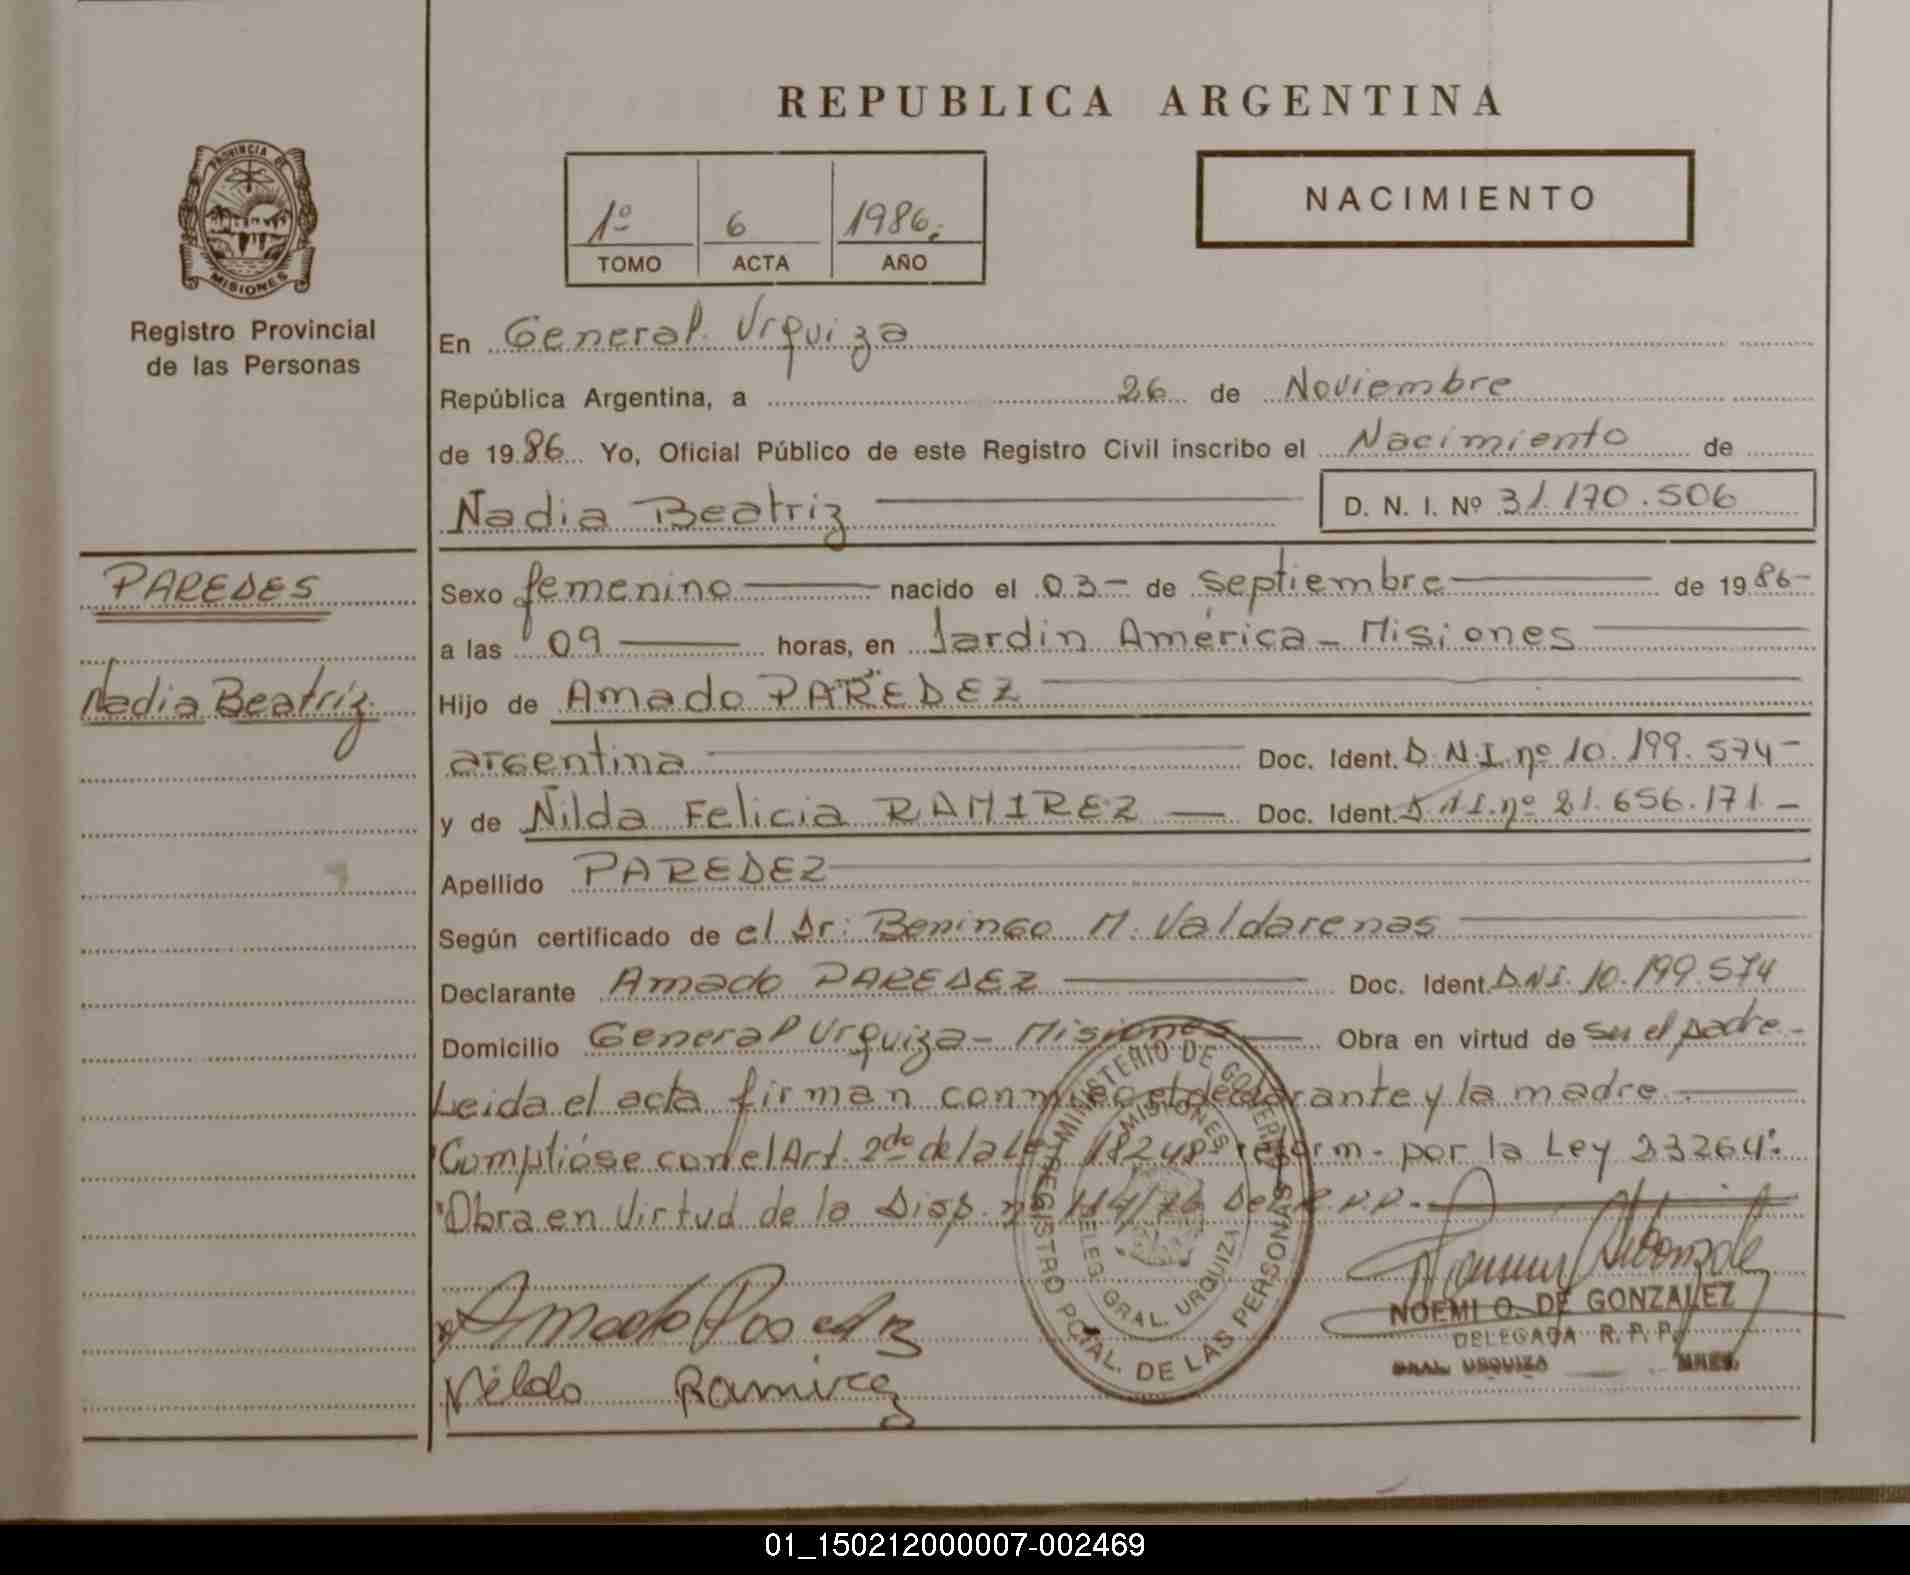 REPUBLICA ARGENTINA
PROVINCIA DE
MISIONES
Registro Provincial
de las Personas
1º 6 1986.
TOMO ACTA AÑO
NACIMIENTO
En General Urquiza
República Argentina, a 26 de Noviembre
de 1986 Yo, Oficial Público de este Registro Civil inscribo el Nacimiento de
Nadia Beatriz D. N. I. Nº 31.170.506
PAREDES
Nadia Beatriz
Sexo femenino nacido el 03- de septiembre de 1986-
a las 09 horas, en Jardin América - Misiones
Hijo de Amado PAREDEZ
argentina Doc. Ident. D.N.I. nº 10.199.574-
y de Nilda Felicia RAMIREZ Doc. Ident. D.N.I. nº 21.656.171.-
Apellido PAREDEZ
Según certificado de el Dr: Beningo M. Valdarenas
Declarante Amado PAREDEZ Doc. Ident. DNI. 10.199.574
Domicilio General Urquiza - Misiones Obra en virtud de ser el padre-
Leida el acta firman conmigo el declarante y la madre
Cumplióse con el Art. 2do de la Ley 18248 reform. por la Ley 23264:
Obra en Virtud de la Disp. nº 114/76 Del R.P.P.-
MINISTERIO DE GOBIERNO
MISIONES
REGISTRO PCIAL. DE LAS PERSONAS
DELEG. GRAL. URQUIZA
Amado Paredez
Nilda Ramirez
NOEMI O. DE GONZALEZ
DELEGADA R. P. P.
GRAL. URQUIZA MNES.
01_150212000007-002469